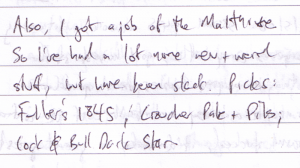 Also, I got a job at the Malthouse
So I've had a lot more new + weird
stuff, but have been steak. Picks:
Fuller's 1845; Croucher Pale + Pils;
Cock & Bull Dark Star